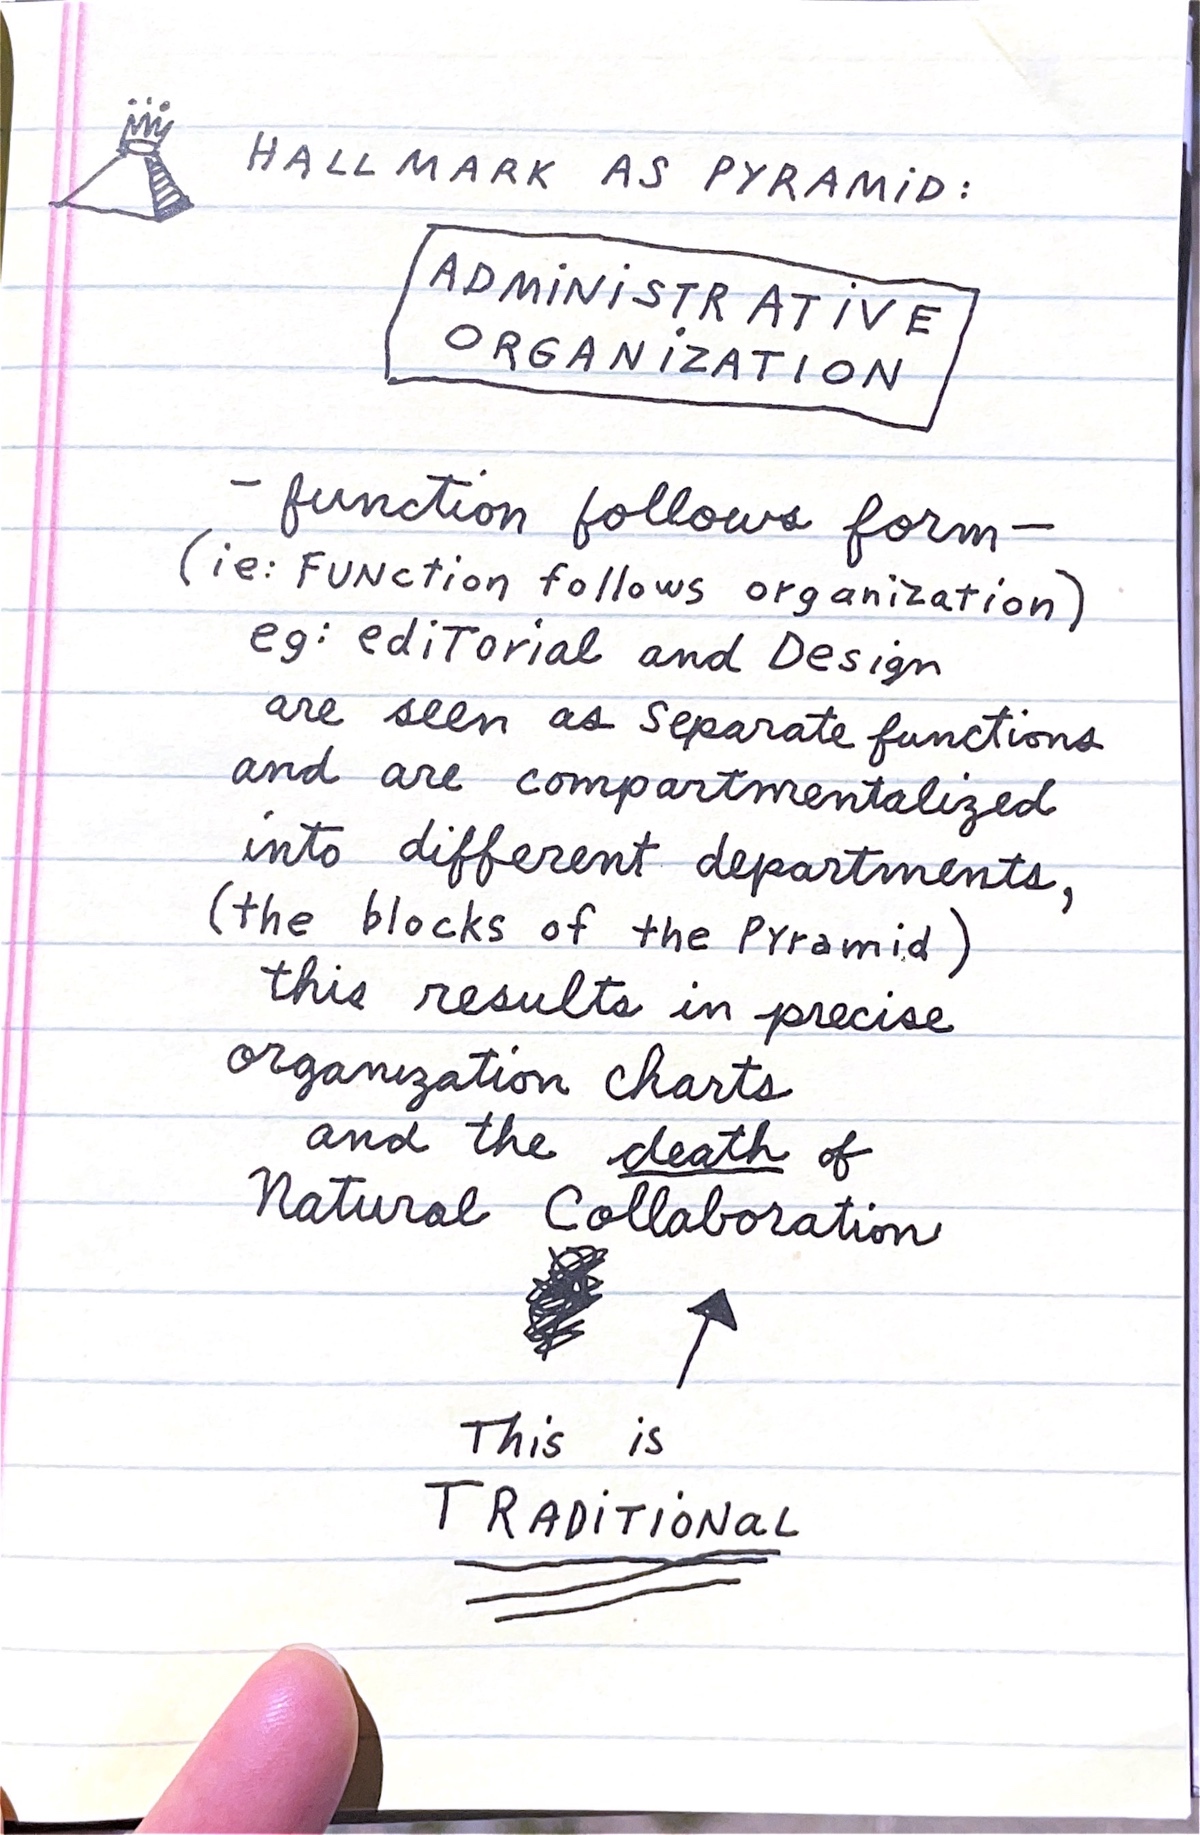 HALLMARK AS PYRAMiD:
ADMiNiSTRATiVE
ORGANiZATION
- function follows form -
(ie: FUNction follows organization)
eg: ediTorial and Design
are seen as separate functions
and are compartmentalized
into different departments,
(the blocks of the Pyramid)
this results in precise
organization charts
and the death of
Natural Collaboration
This is
TRADiTiONaL